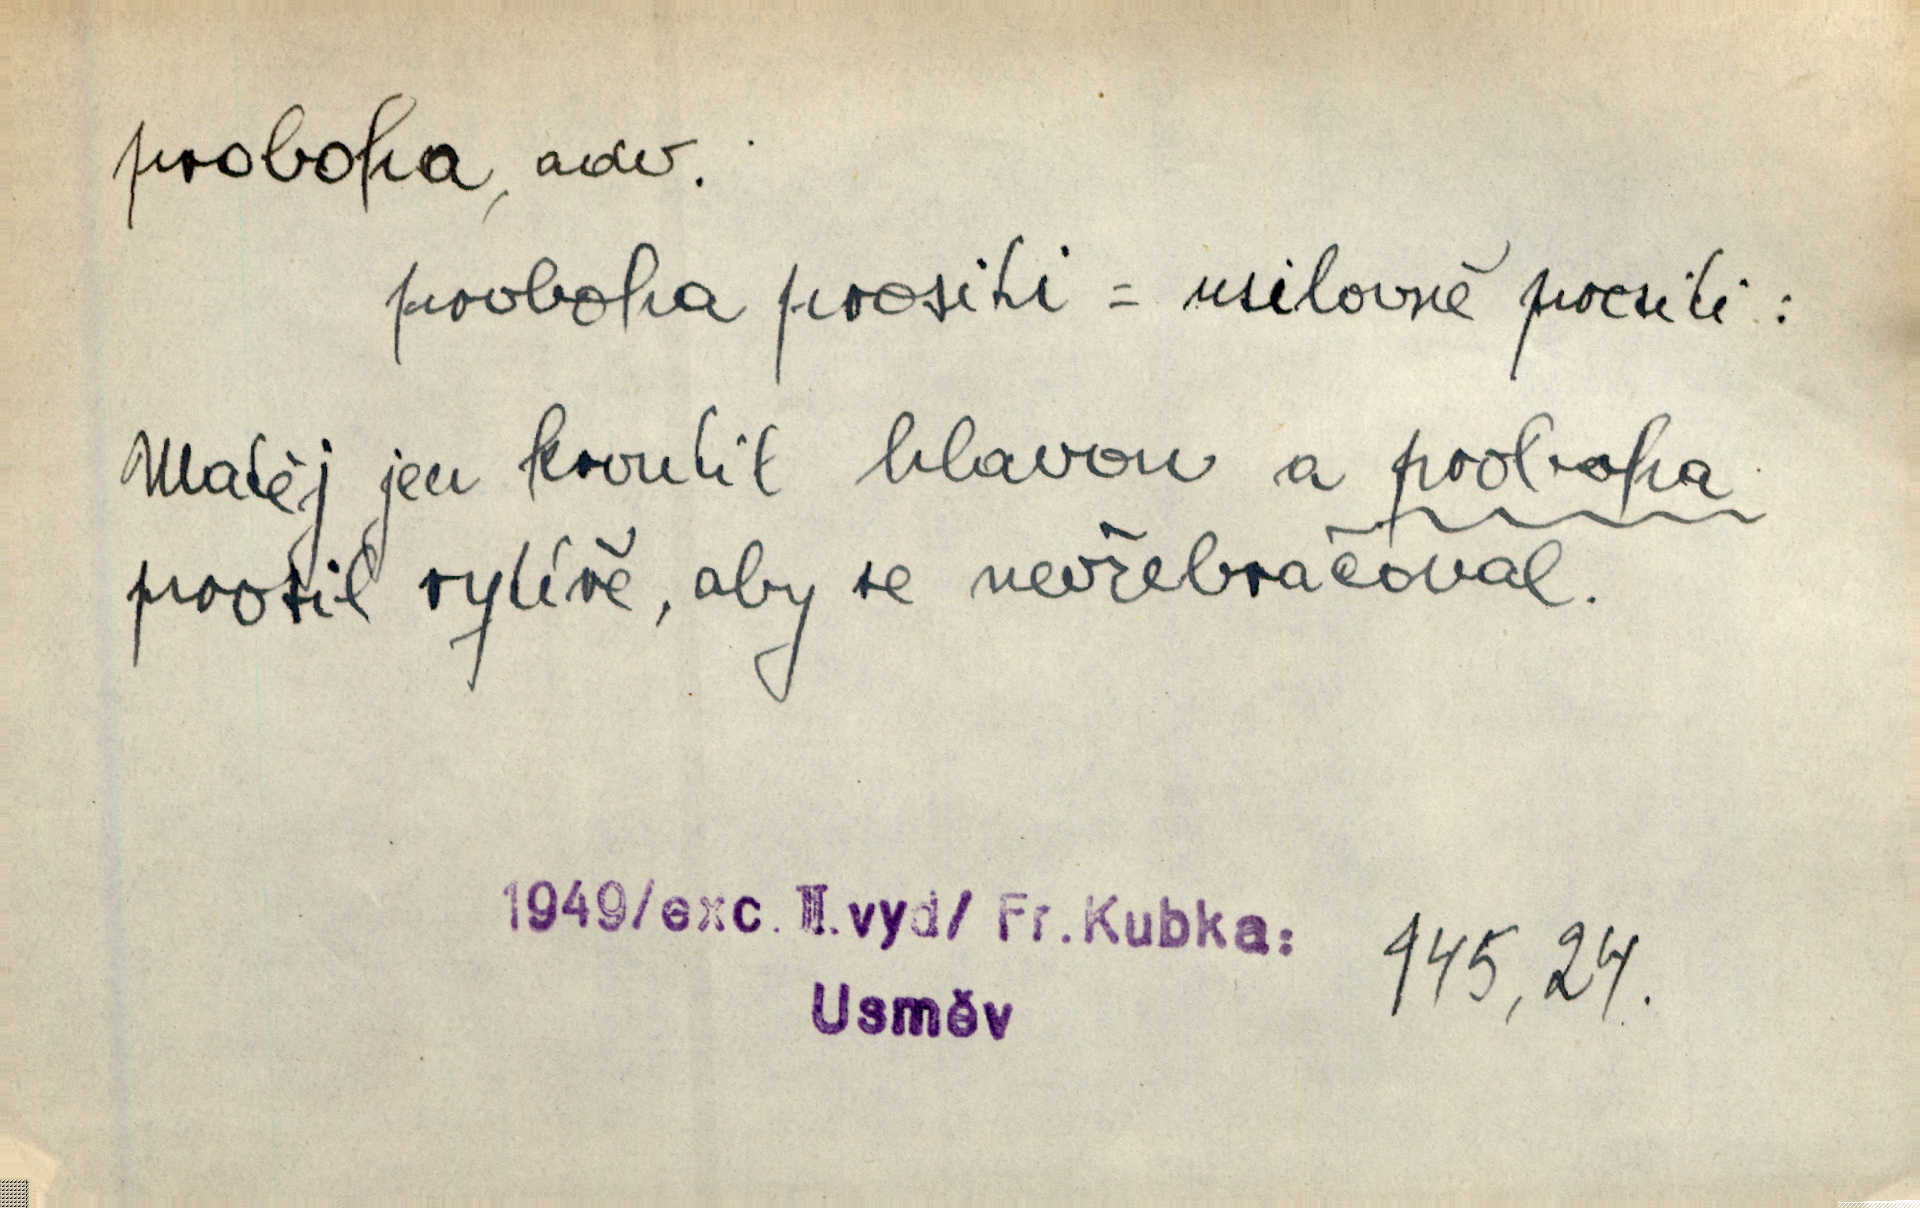 proboha, adv.
proboha prositi = usilovně prositi:
Matěj jen kroutil hlavou a proboha
prosil rytíře, aby se nevřebračoval.
1949/exc. II.vyd/ Fr.Kubka:
Usměv
145, 24.